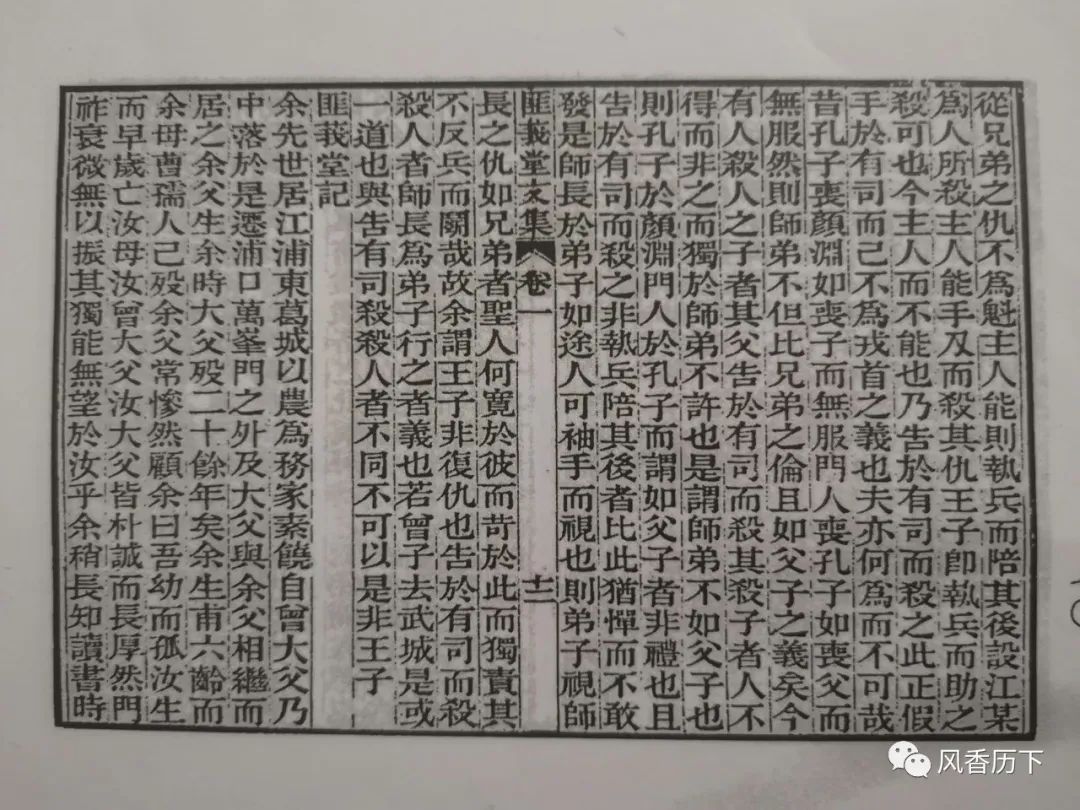 從兄弟之仇不爲魁主人能則執兵而陪其後設江某
爲人所殺主人能手及而殺其仇王子卽執兵而助之
殺可也今主人而不能也乃告於有司而殺之此正假
手於有司而己不爲戎首之義也夫亦何爲而不可哉
昔孔子喪顏淵如喪子而無服門人喪孔子如喪父而
無服然則師弟不但比兄弟之倫且如父子之義矣今
有人殺人之子者其父告於有司而殺其殺子者人不
得而非之而獨於師弟不許也是謂師弟不如父子也
則孔子於顏淵門人於孔子而謂如父子者非禮也且
告於有司而殺之非執兵陪其後者比此猶憚而不敢
發是師長於弟子如途人可袖手而視也則弟子視師
匪莪堂文集 卷一 十二
長之仇如兄弟者聖人何寬於彼而苛於此而獨責其
不反兵而鬬哉故余謂王子非復仇也告於有司而殺
殺人者師長爲弟子行之者義也若曾子去武城是或
一道也與告有司殺殺人者不同不可以是非王子
匪莪堂記
余先世居江浦東葛城以農爲務家素饒自曾大父乃
中落於是遷浦口萬峯門之外及大父與余父相繼而
居之余父生余時大父歿二十餘年矣余生甫六齡而
余母曹孺人已歿余父常慘然顧余曰吾幼而孤汝生
而早歲亡汝母汝曾大父汝大父皆朴誠而長厚然門
祚衰微無以振其獨能無望於汝乎余稍長知讀書時
风香历下